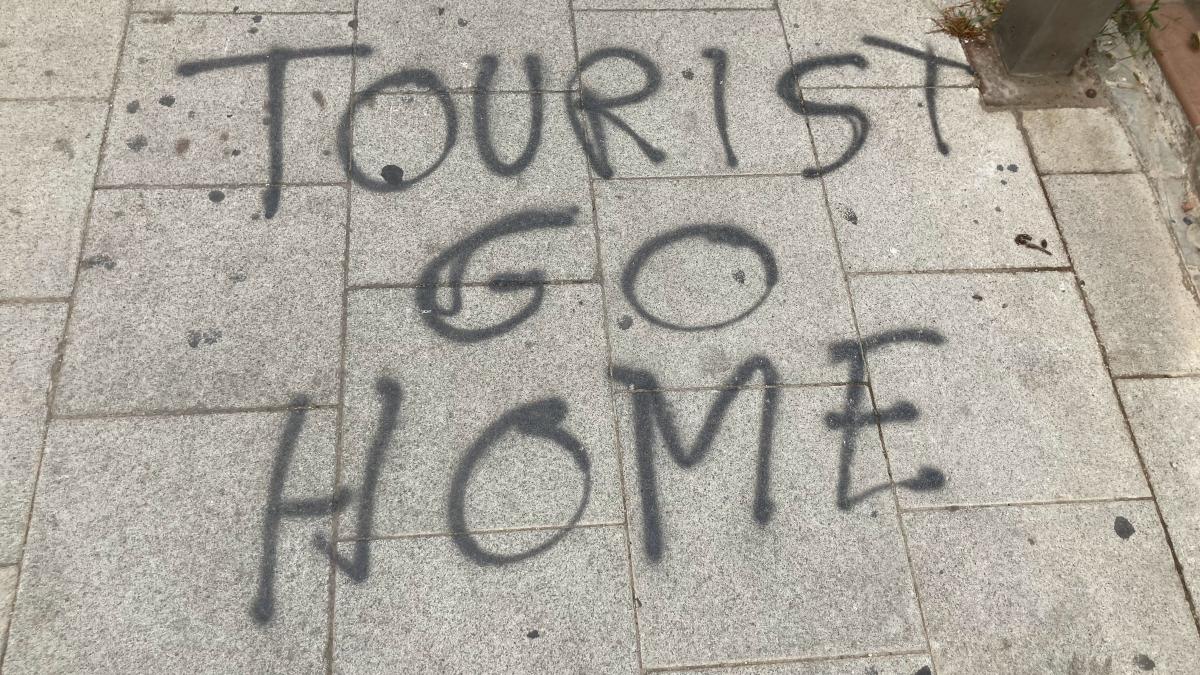 TOURIST
GO
HOME